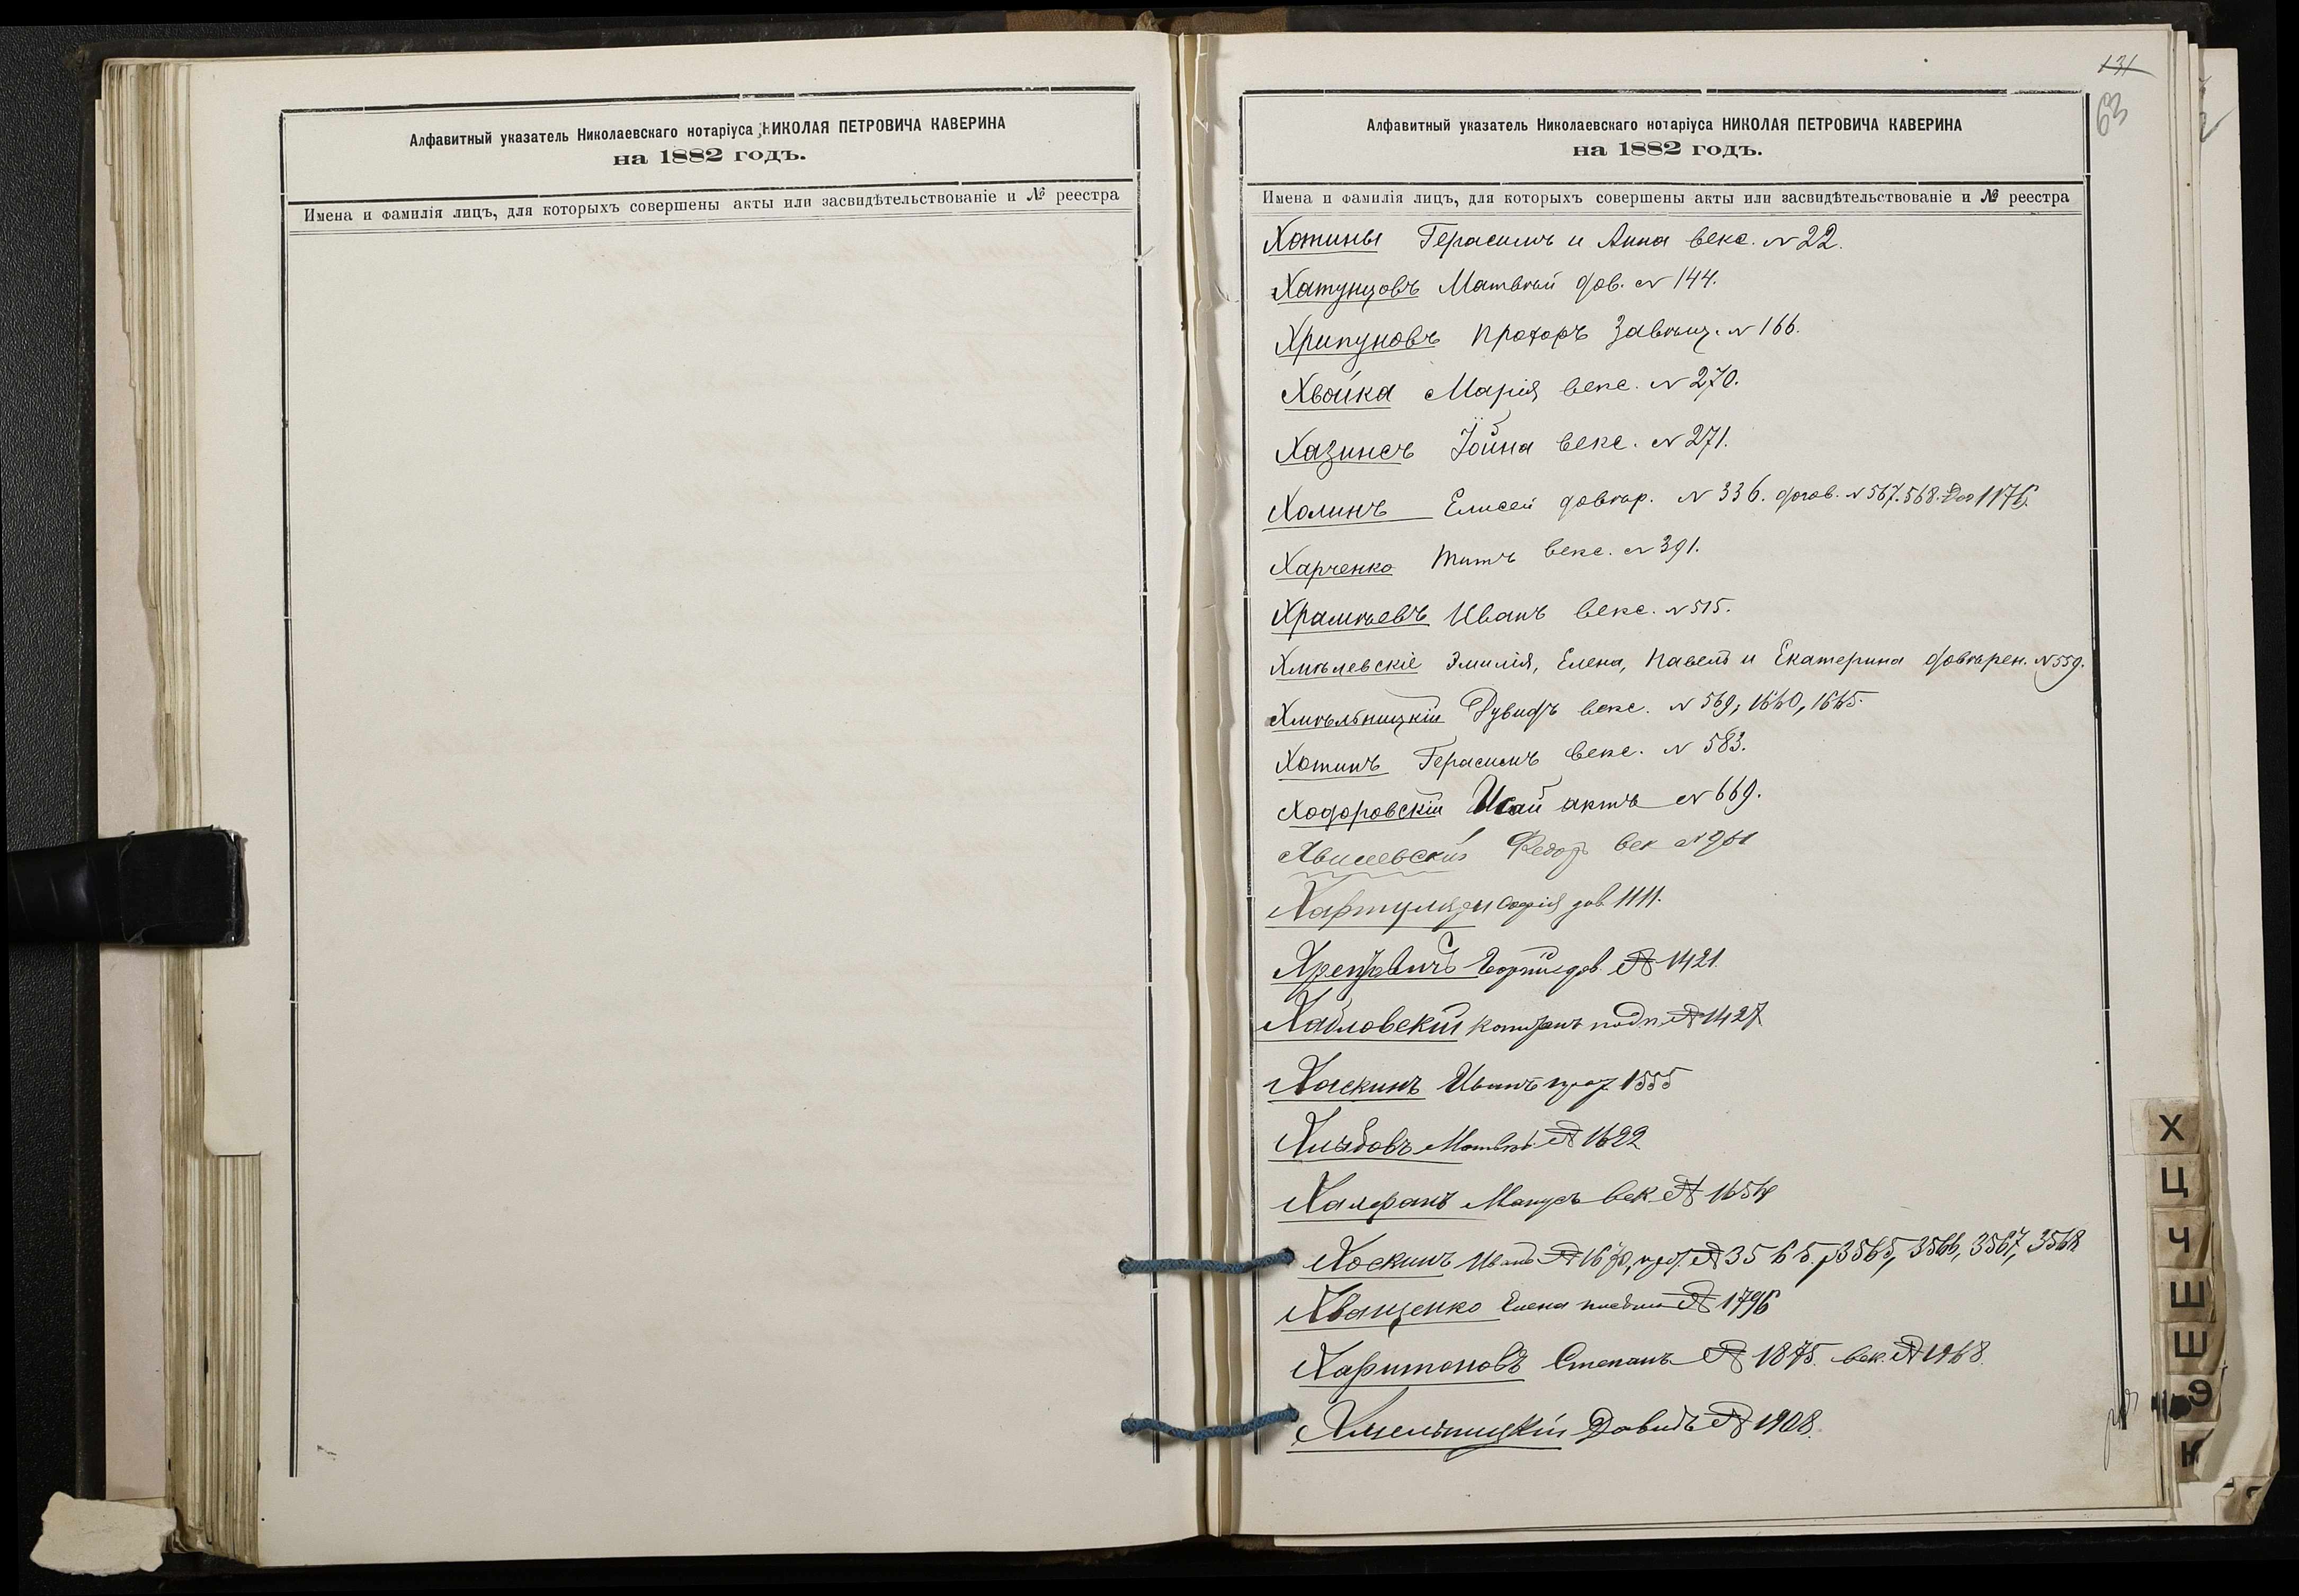 Алфавитный указатель Николаевскаго нотаріуса НИКОЛАЯ ПЕТРОВИЧА КАВЕРИНА
на 1882 годъ.
Имена и фамилія лицъ, для которыхъ совершены акты или засвидѣтельствованіе и № реестра
131
63
Алфавитный указатель Николаевскаго нотаріуса НИКОЛАЯ ПЕТРОВИЧА КАВЕРИНА
на 1882 годъ.
Имена и фамилія лицъ, для которыхъ совершены акты или засвидѣтельствованіе и № реестра
Хотины Герасимъ и Анна векс. N 22.
Хатунцовъ Матвѣй дов. N 144.
Хрипуновъ Прохоръ завѣщ. N 166.
Хвойка Марія векс. N 270.
Хазинсъ Іойна векс. N 271.
Холинъ Елисей довѣр. N 336. догов. N 567. 568. Дов 1176.
Харченко Титъ векс. N 391.
Храмѣевъ Иванъ векс. N 515.
Хмѣлевскіе Эмилія, Елена, Павелъ и Екатерина довѣрен. N 559.
Хмѣльницкій Дувидъ векс. N 569, 1660, 1665.
Хотинъ Герасимъ векс. N 583.
Ходоровскій Исай актъ N 669.
Федоръ век N 961
Софія дов. 1111.
дов. № 1421.
№ 1427
Хаскинъ Иванъ 1555
Хлѣбовъ Матвѣй № 1622
век № 1654
Хоскинъ Иванъ № 3565, 3566, 3567, 3568
Хващенко Елена № 1796
Харитоновъ Степанъ № 1875. век. № 1968.
Хмельницкій Давидъ № 1908.
Х
Ц
Ч
Ш
Э